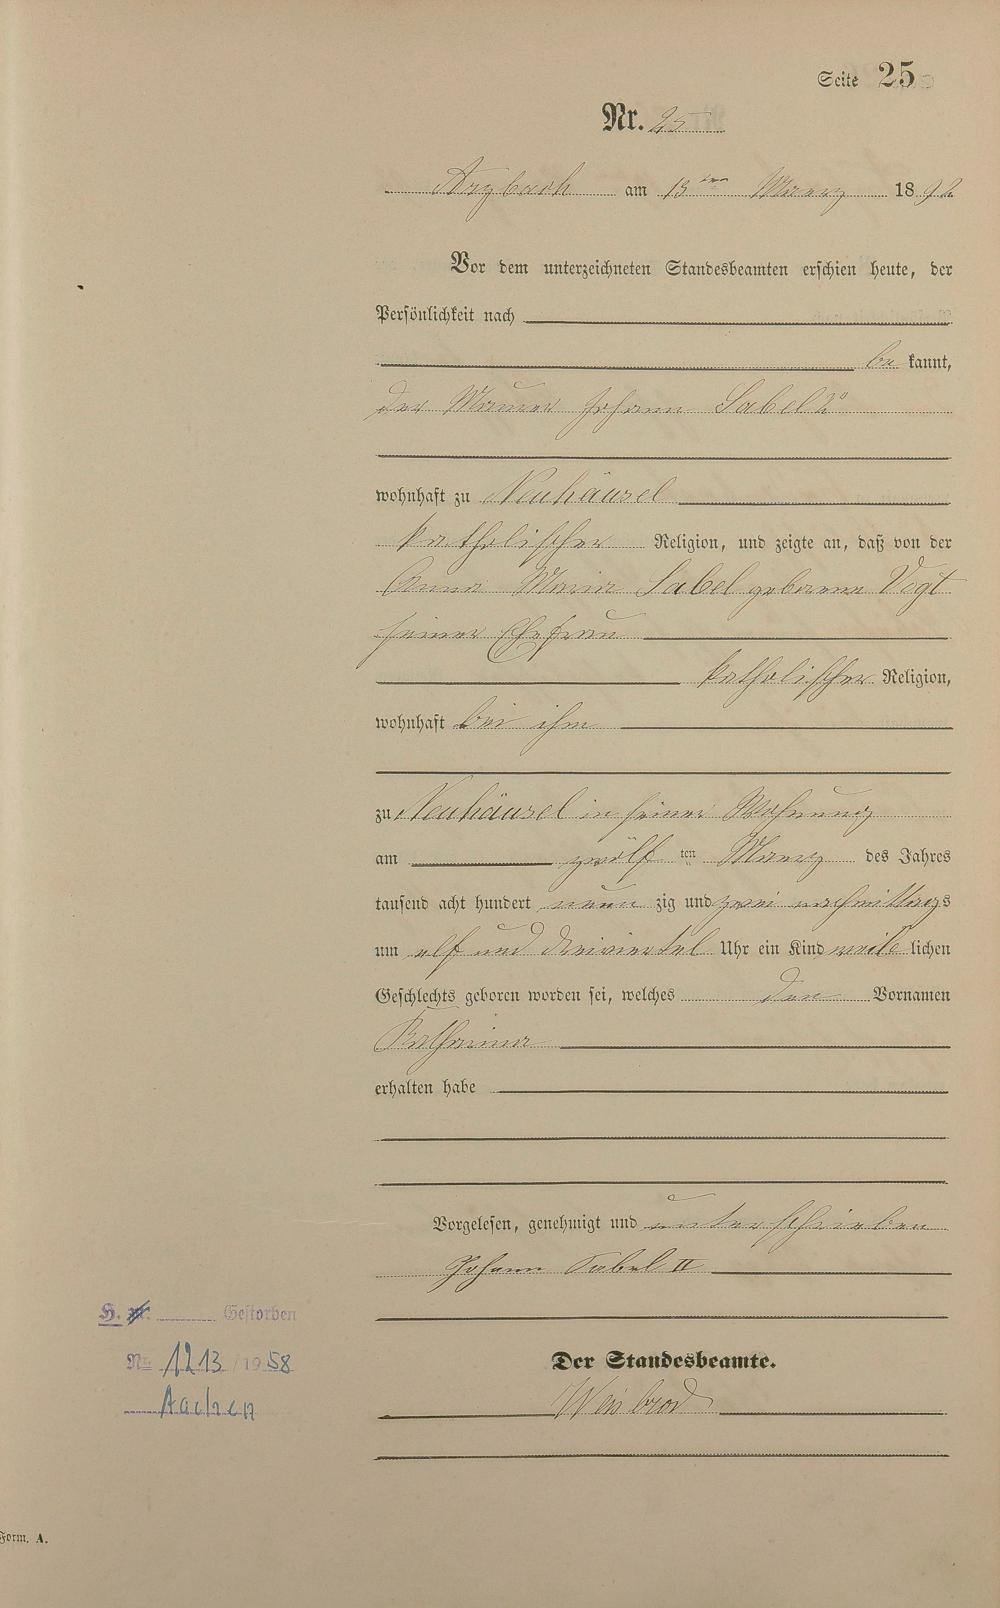 Seite 25
Nr. 25
Arzbach am 13ten Maerz 1892
Vor dem unterzeichneten Standesbeamten erschien heute, der
Persönlichkeit nach
be kannt,
der Maurer Johann Sabel 2º
wohnhaft zu Neuhäusel
katholischer Religion, und zeigte an, daß von der
Anna Maria Sabel geborene Vogt
seiner Ehefrau
katholischer Religion,
wohnhaft bei ihm
zu Neuhäusel in seiner Wohnung
am zwölf ten Maerz des Jahres
tausend acht hundert neun zig und zwei nachmittags
um elf und dreiviertel Uhr ein Kind weib lichen
Geschlechts geboren worden sei, welches den Vornamen
Katharina
erhalten habe
Vorgelesen, genehmigt und unterschrieben
Johann Sabel II
H. Gestorben
Nr. 1213/1958
Aachen
Der Standesbeamte.
Weisbrod
Form. A.